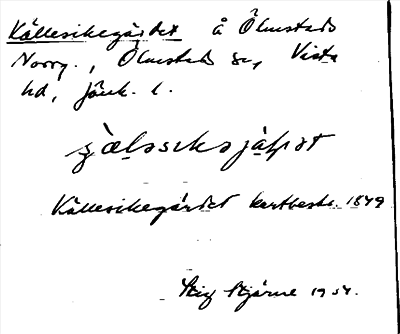 Källesikegärdet å Ölmstads
Norrg., Ölmstads sn, Vista
hd, Jönk. l.
Källesikegärdet kartbeskr. 1849
Stig Stjärne 1954.